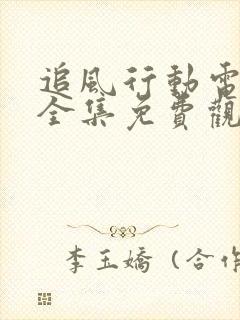 追風行動電
全集免費觀
李玉嬌（合作